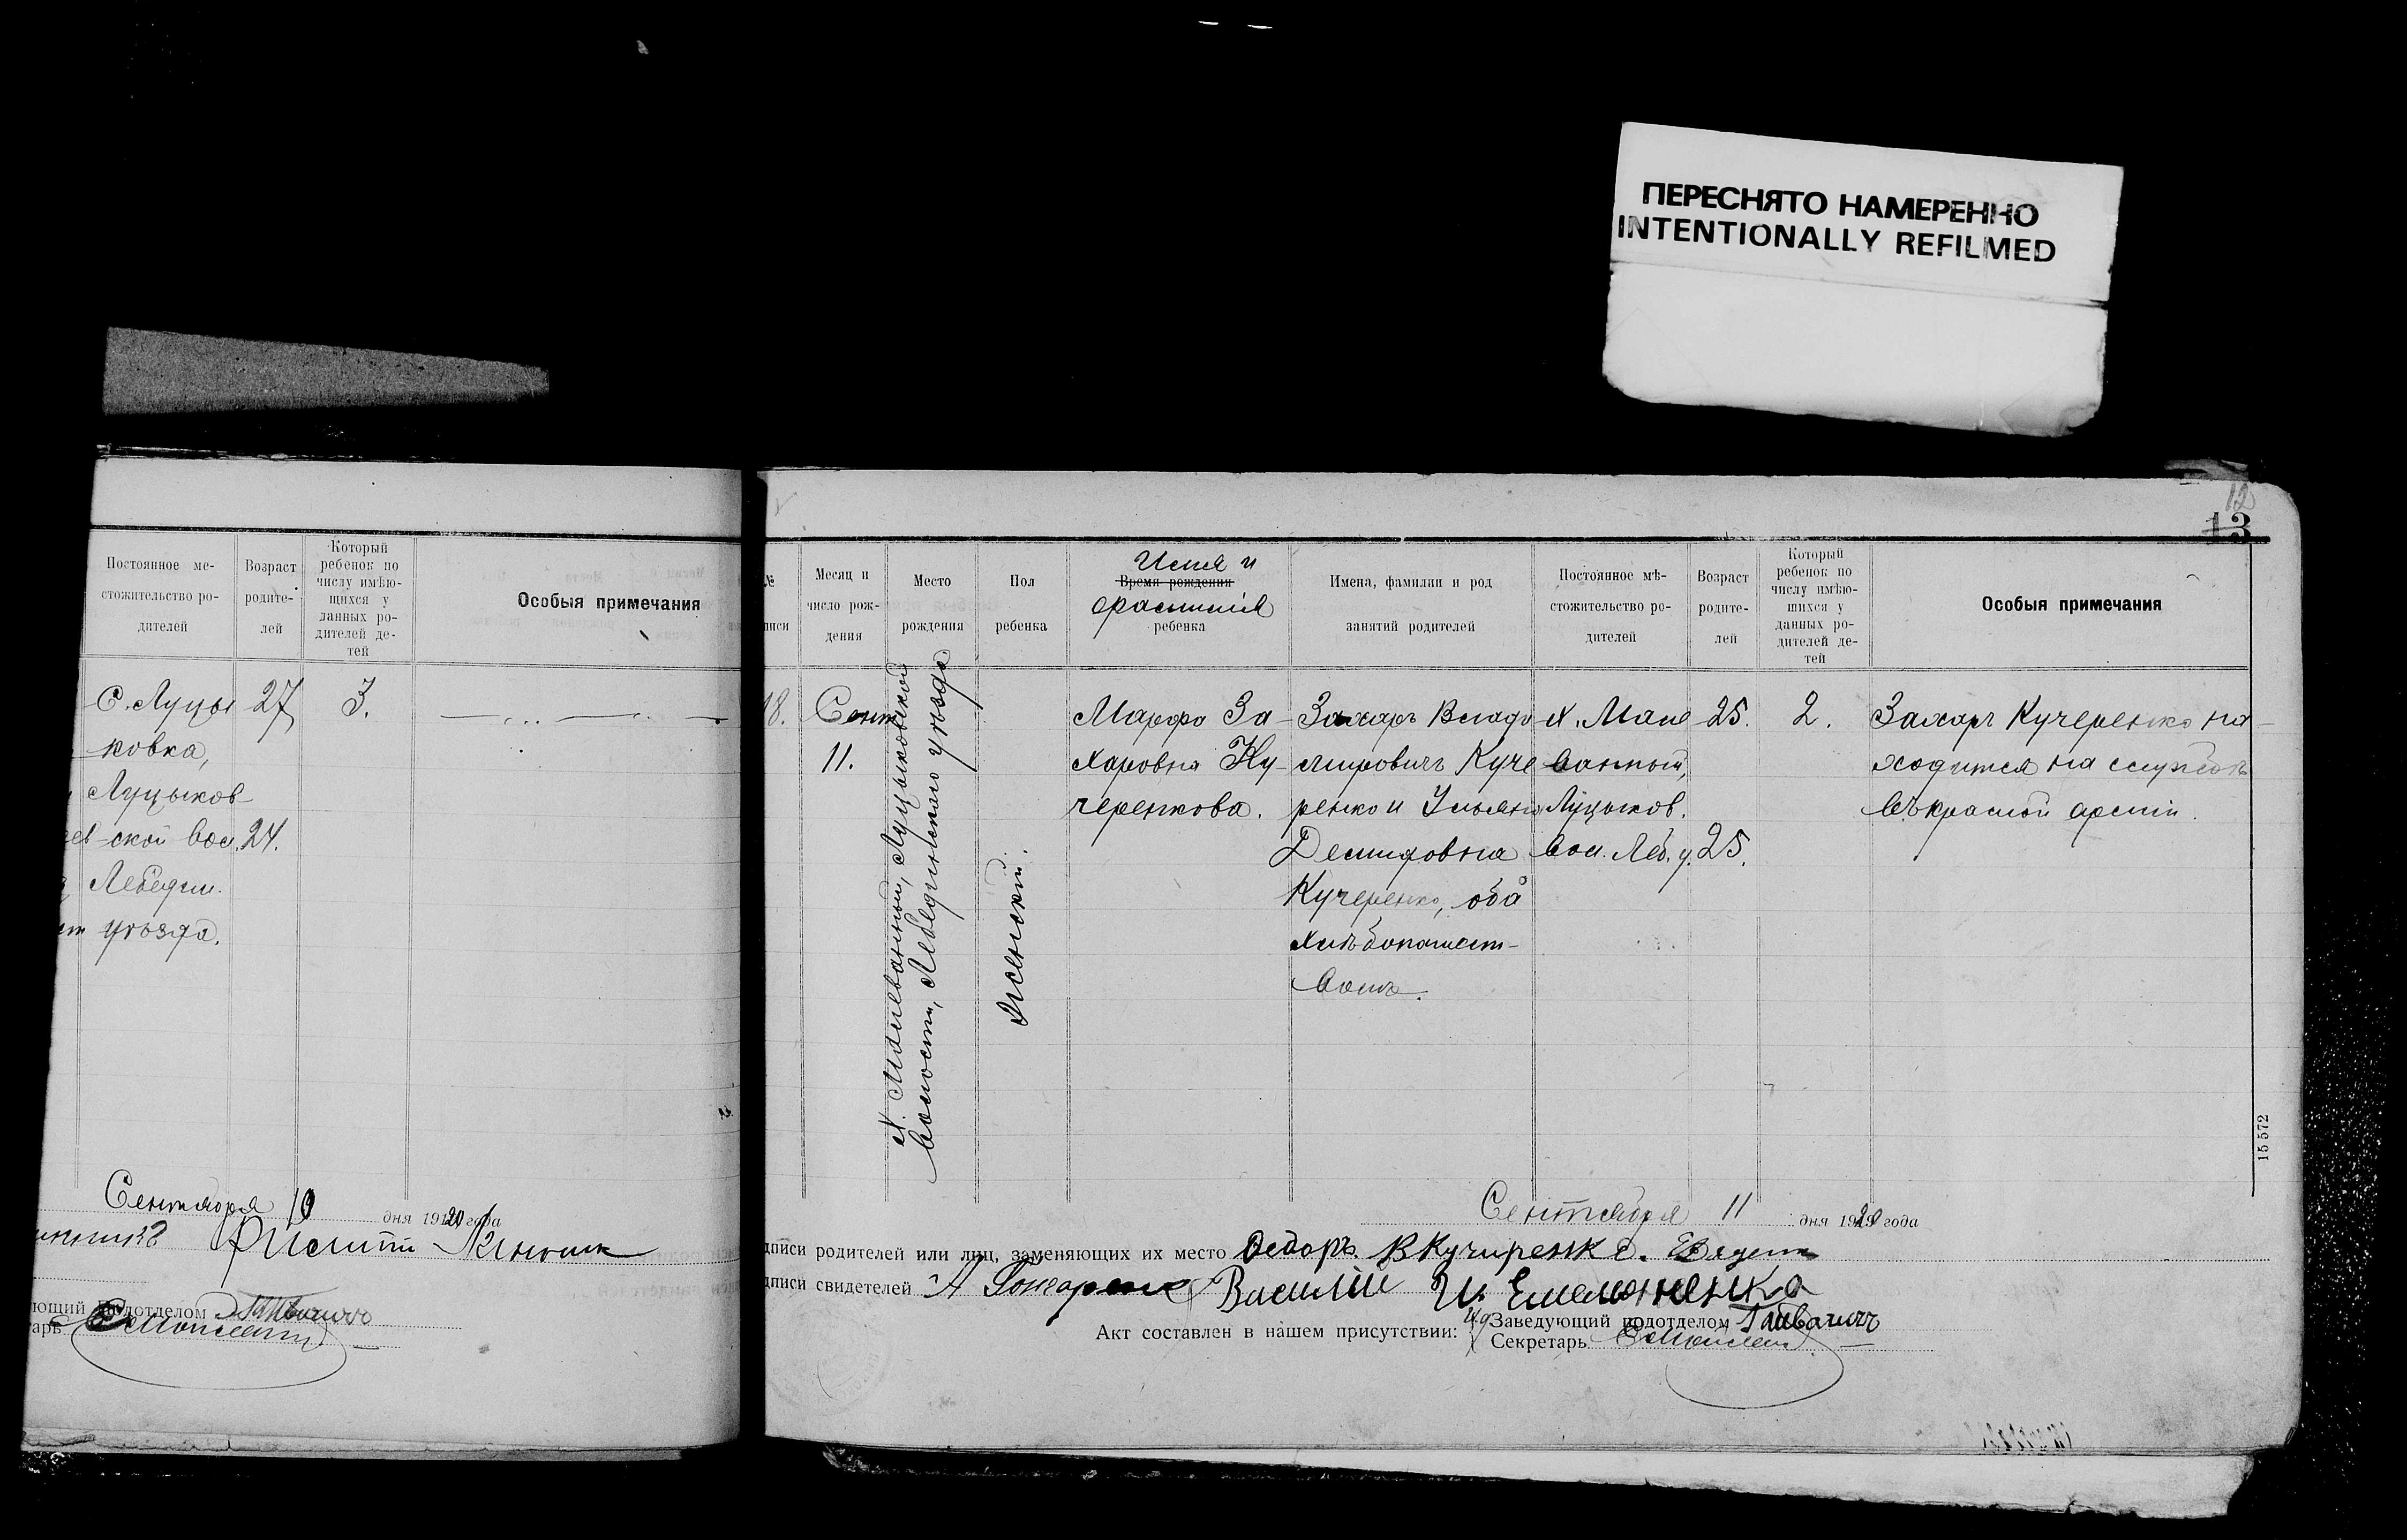 ПЕРЕСНЯТО НАМЕРЕННО
INTENTIONALLY REFILMED
Постоянное ме-
стожительство ро-
дителей
Возраст
родите-
лей
Который
ребенок по
числу имѣю-
щихся у
данных ро-
дителей де-
тей
Особыя примечания
С. Луцы
ковка,
Луцыков
ской вол.
Лебедин.
уѣзда.
27
24.
3.
Сентября 10 дня 1920 года
12
13
№
Месяц и
число рож-
дения
Место
рождения
Пол
ребенка
Имя и
Время рождения
фамилія
ребенка
Имена, фамилии и род
занятий родителей
Постоянное мѣ-
стожительство ро-
дителей
Возраст
родите-
лей
Который
ребенок по
числу имѣю-
шихся у
данных ро-
дителей де-
тей
Особыя примечания
18.
Сент
11.
волости, Лебединскаго уѣзда
Женский.
Марфа За-
харовна Ку-
черенкова.
Захаръ Влади
мировичъ Куче
ренко и Ульяна
Демидовна
Кучеренко, оба
хлѣбопашест-
вомъ.
ванный,
Луцыков.
вол. Леб. у.
25.
25.
2.
Захаръ Кучеренко на-
ходится на службѣ
въ красной арміи.
15 572
Сентября 11 дня 1920 года
дписи родителей или лиц, заменяющих их место Федоръ
дписи свидетелей Василій И. Емельяненко
Акт составлен в нашем присутствии: Заведующий подотделом
Секретарь